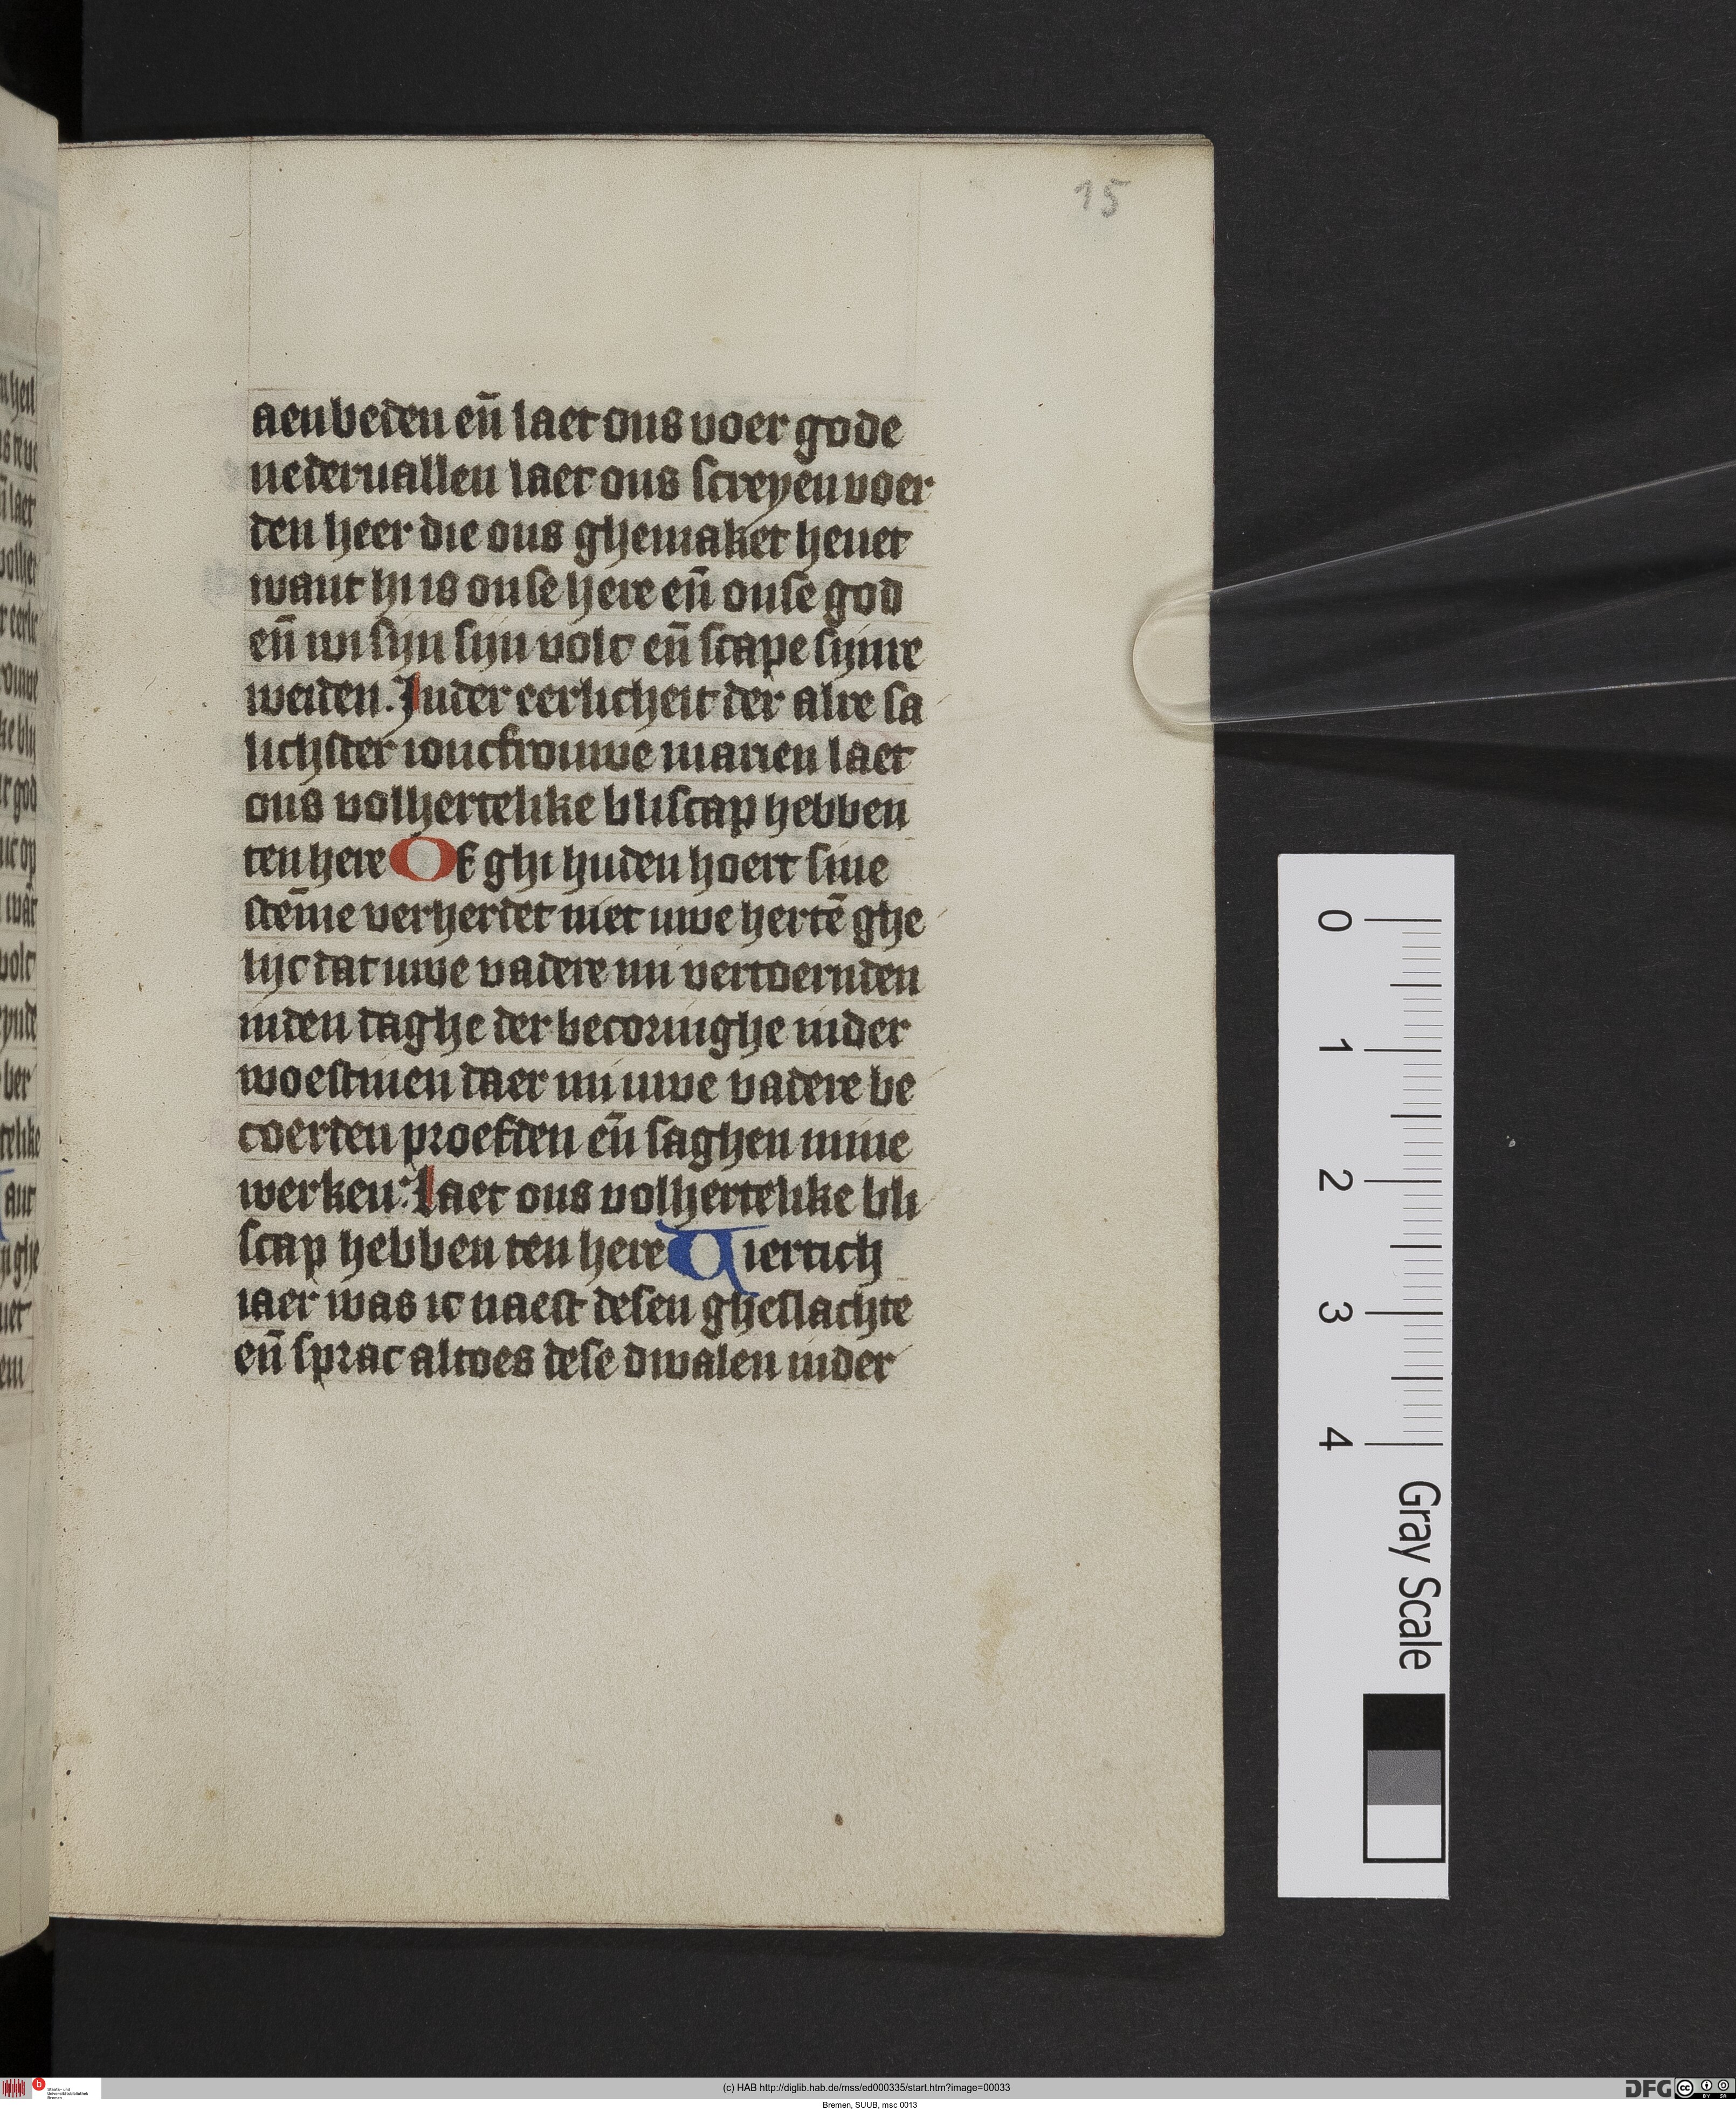 15
aenbeden en̄ laet ons voer gode
nedervallen laet ons screyen voer
den heer die ons ghemaket hevet
want hi is onse here en̄ onse god
en̄ wi sijn sijn volc en̄ scape sijnre
weiden. Inder eerlicheit der alre sa
lichster ioncfrouwe marien laet
ons volhertelike bliscap hebben
ten here Of ghi huden hoert sine
stēme verhertet niet uwe hertē ghe
lijc dat uwe vadere mi vertoernden
inden daghe der becoringhe inder
woestinen daer mi uwe vadere be
coerden proefden en̄ saghen mine
werken: Laet ons volhertelike bli
scap hebben ten here Viertich
iaer was ic naest desen gheslachte
en̄ sprac altoes dese dwalen inder
0
1
2
3
4
Gray Scale
(c) HAB http://diglib.hab.de/mss/ed000335/start.htm?image=00033
Bremen, SUUB, msc 0013
Staats- und
Universitätsbibliothek
Bremen
DFG